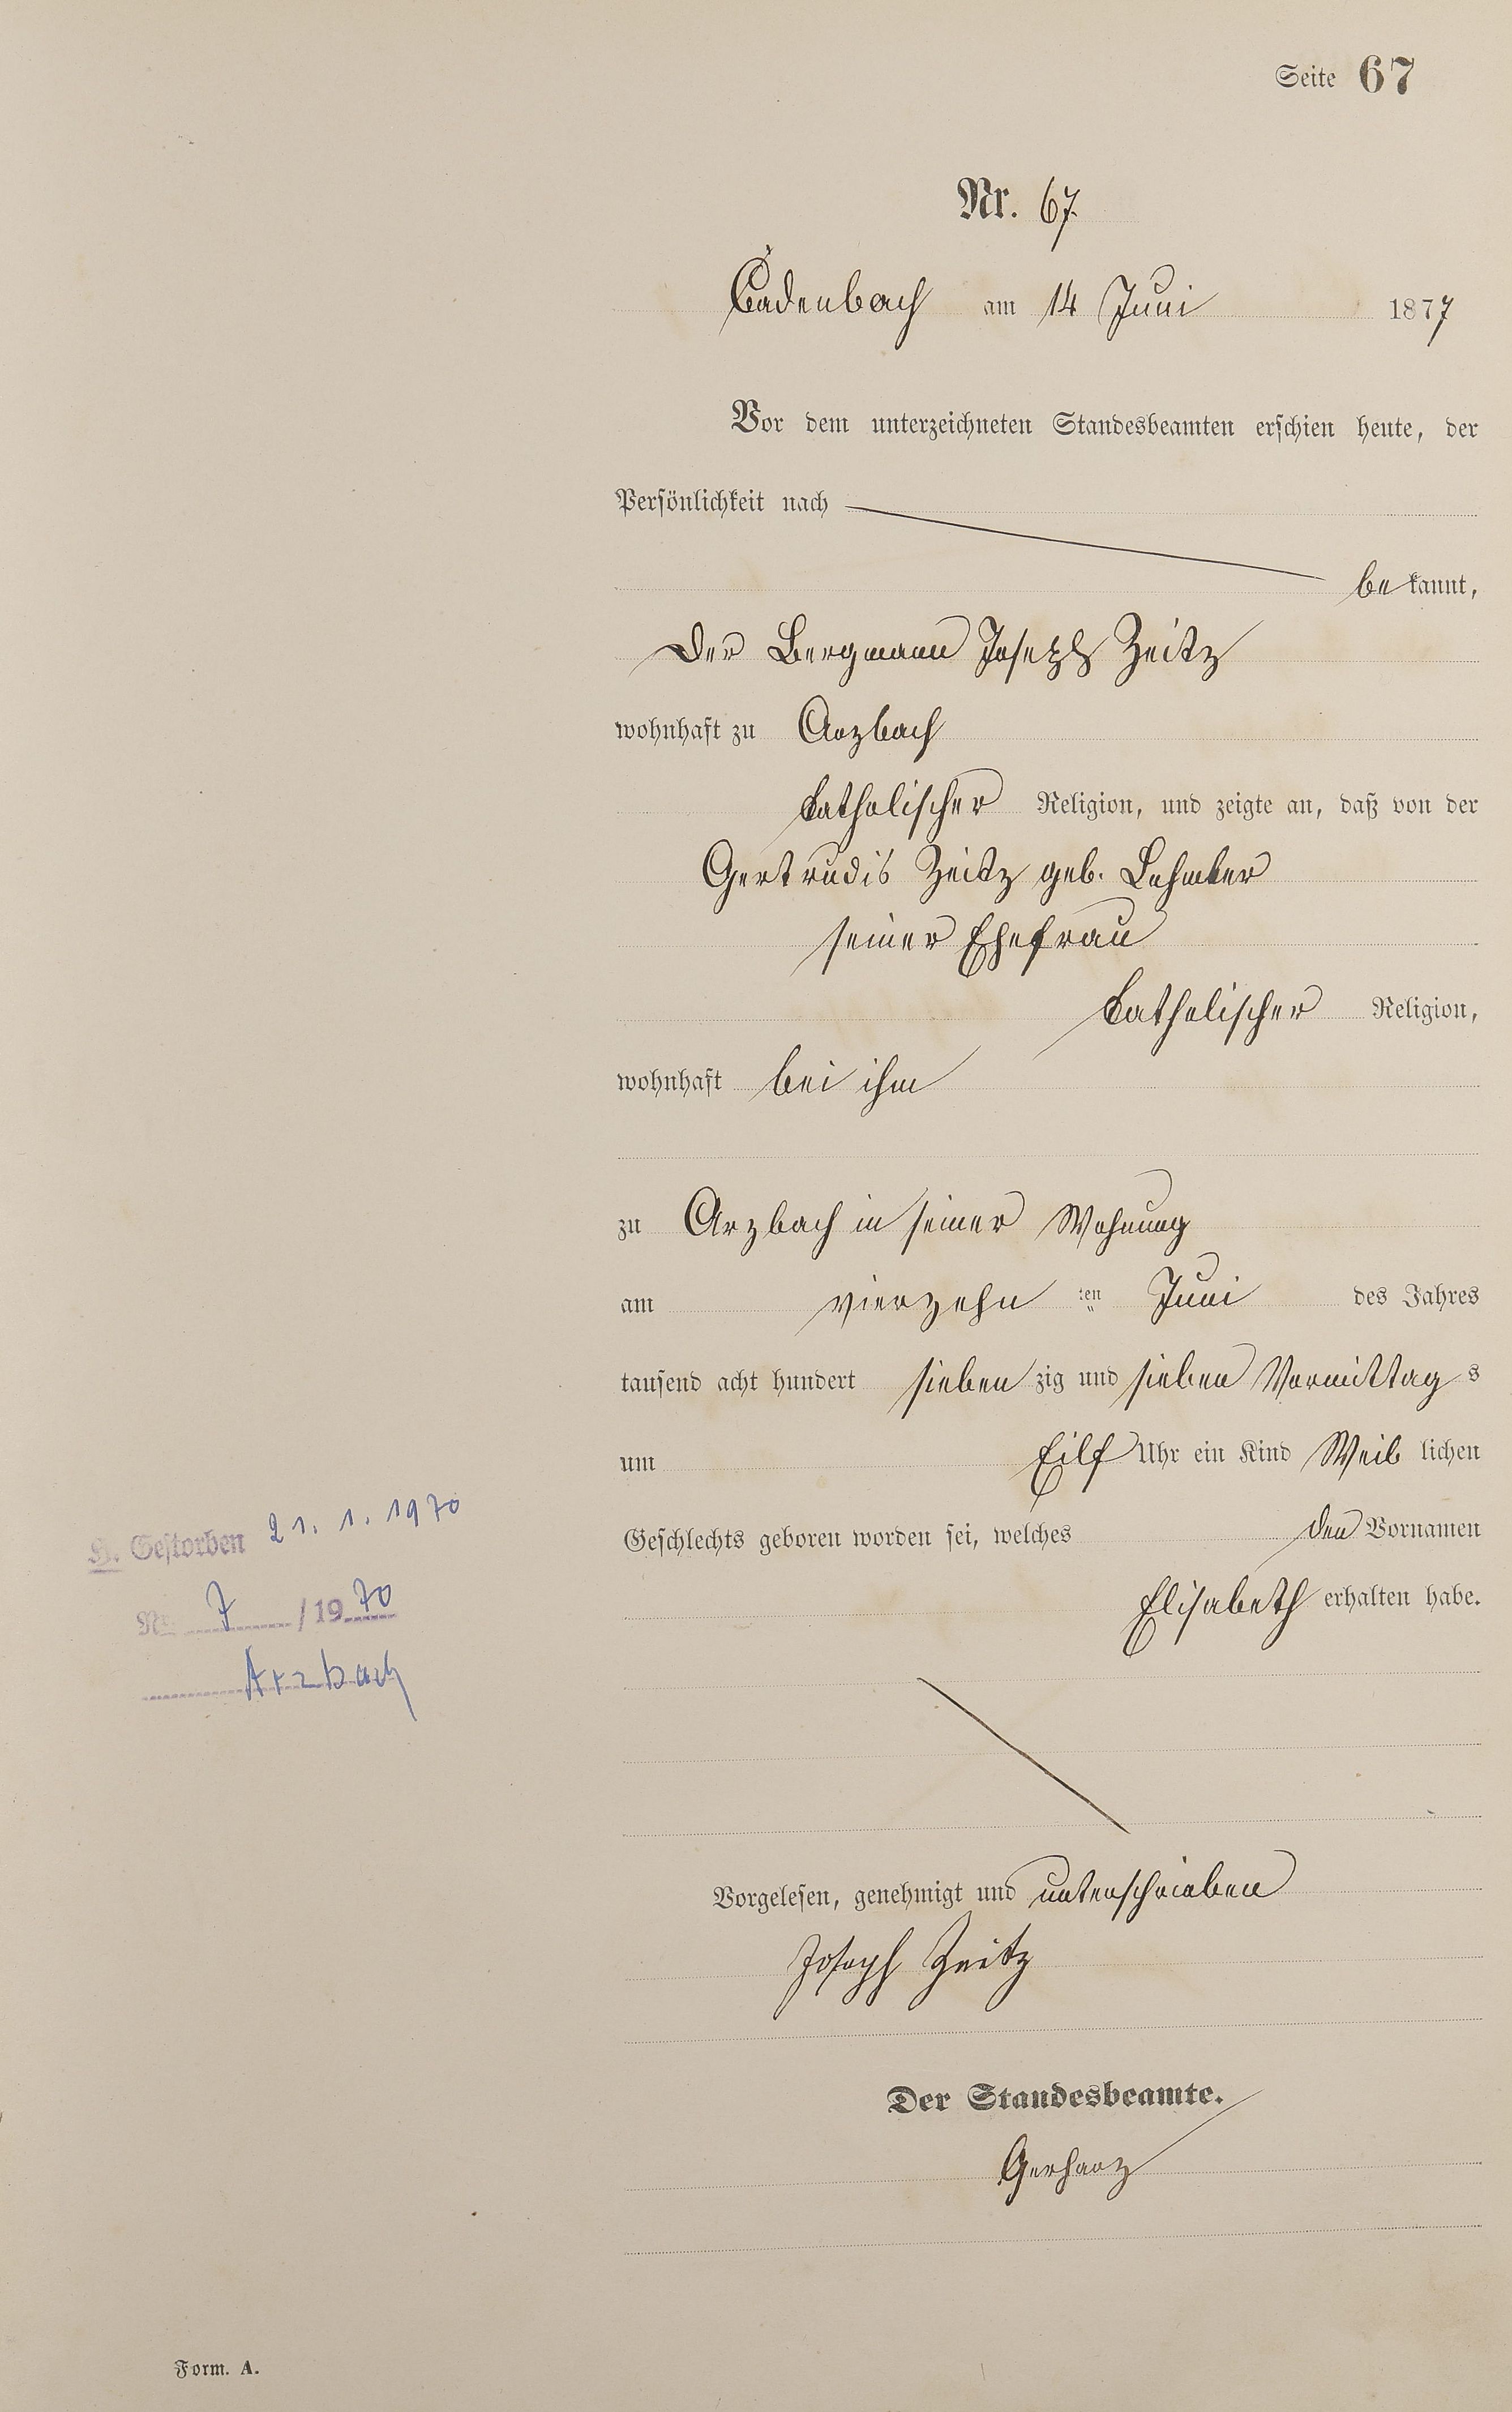 Seite 67
Nr. 67
Cadenbach am 14 Juni 1877
Vor dem unterzeichneten Standesbeamten erschien heute, der
Persönlichkeit nach
bekannt,
Der Bergmann Joseph Zeitz
wohnhaft zu Arzbach
katholischer Religion, und zeigte an, daß von der
Gertrudis Zeitz geb.
seiner Ehefrau
katholischer Religion,
wohnhaft bei ihm
zu Arzbach in seiner Wohnung
am vierzehn ten Juni des Jahres
tausend acht hundert sieben zig und sieben Vormittag s
um Eilf Uhr ein Kind Weib lichen
Geschlechts geboren worden sei, welches den Vornamen
Elisabeth erhalten habe.
H. Gestorben 21. 1. 1970
Nr. 7 / 1970
Arzbach
Vorgelesen, genehmigt und unterschrieben
Joseph Zeitz
Der Standesbeamte.
Gerharz
Form. A.